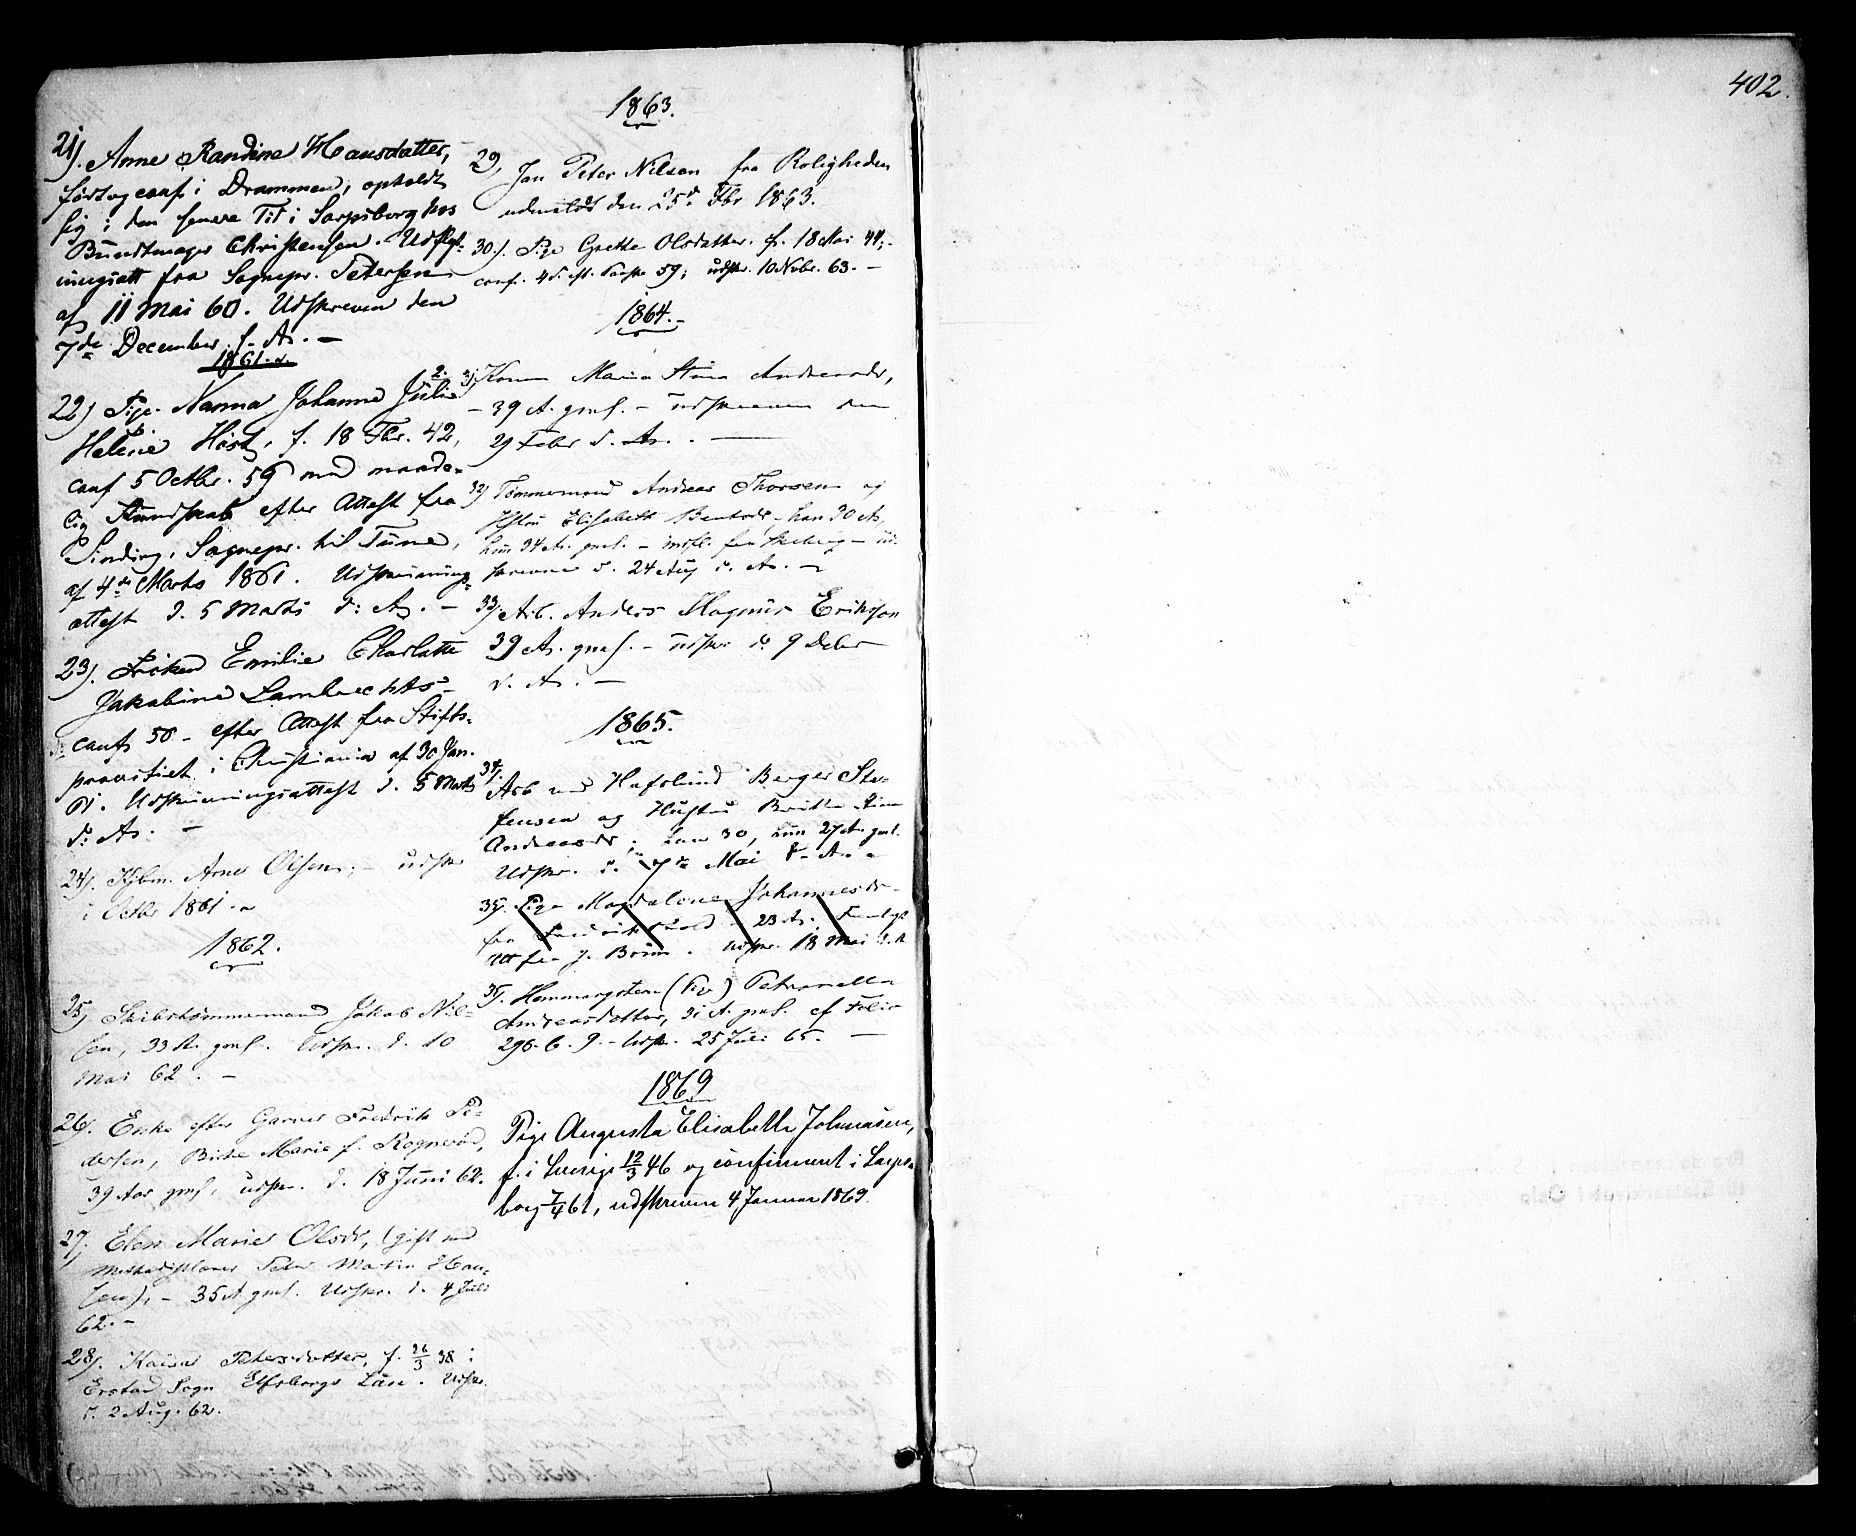 21). Anne Randine Hansdatter,
født og conf. i Drammen, opholdt
sig i den senere Tid i Sarpsborg hos
Bundtmager Christensen. Udskriv-
ningsatt fra Sognepr. Petersen
af 11 Mai 60. Udskreven den
7de December s. A. –
1861.
22) Pige Nanna Johanne Julie
Helene Höst, f. 18 Fbr. 42,
conf 5 Octbr. 59 med maade-
lig Kundskab efter Attest fra
Sinding, Sognepr. til Tune,
af 4de Marts 1861. Udskrivnings-
attest d. 5 Marts d: A. –
23). Frøken Emilie Charlotte
Jakobine Lambrechts –
conf. 50 – efter Attest fra Stifts-
provstiet i Christiania af 30 Jan.
61. Udskrivningsattest d. 5 Marts
d: A. –
24). Kjbm. Arne Olsen; – udskr
i Octbr 1861.
1862.
25) Skibstømmermand Jakob Niel-
sen, 33 A. gml. Udskr. d. 10
Mai 62. –
26). Enke efter Garver Fredrik Pe-
dersen, Marie f.
39 Aar gml. udskr. d. 18 Juni 62.
27. Elen Marie Olsdr, (gift med
Peter Martin Han-
sen), – 35 A gml. Udskr. d. 4 Juli
62. –
28). Kaisa Petersdatter, f. 26/3 38 i
Erstad Sogn Elfsborgs Län. Udskr.
d. 2 Aug. 62.
1863.
29, Jan Peter Nilsen fra Roligheden
udmeldt den 25de Fbr 1863.
30.) Pige Grethe Olsdatter. f. 18 Mai 44;
conf. 59; udskr. 10 Novbr. 63. –
1864. –
31, Kone Maria Stina Andreasdr,
– 39 A. gml. – udskreven den
29 Febr d. A. –
32) Tømmermand Andreas Thorsen og
Hstru Elisabeth Bentsdr, han 30 A,
hun 34 A. gml. – indfl. fra Skeberg – ud-
skrevne d. 24 Aug d. A. –
33, Arb. Anders Magnus Erikson
39 A. gml. – udskr d. 9 Debr
d. A. –
1865.
34, Arb ved Hafslund Berger Ste-
fensen og Hustru Britta
Andreasdr; han 30, hun 27 A. gml.
Udskr. d. 7de Mai d. A. –
35. Pige Magdalene Johannesdr –
fra Fredrikshald – 23 A.
att fra J. Bruun. Udskr. 18 Mai d. A
35. (Pige) Petronella
Andreasdotter, 31 A. gml. cf Folio
296. 6. 9. – Udskr. 25 Juli 65. –
1869
Pige Augusta Elisabeth Johnasen,
f. i Sverige 12/3 46 og confirmeret i Sarps-
borg 7/4 61, udskreven 4 Januar 1869.
402.